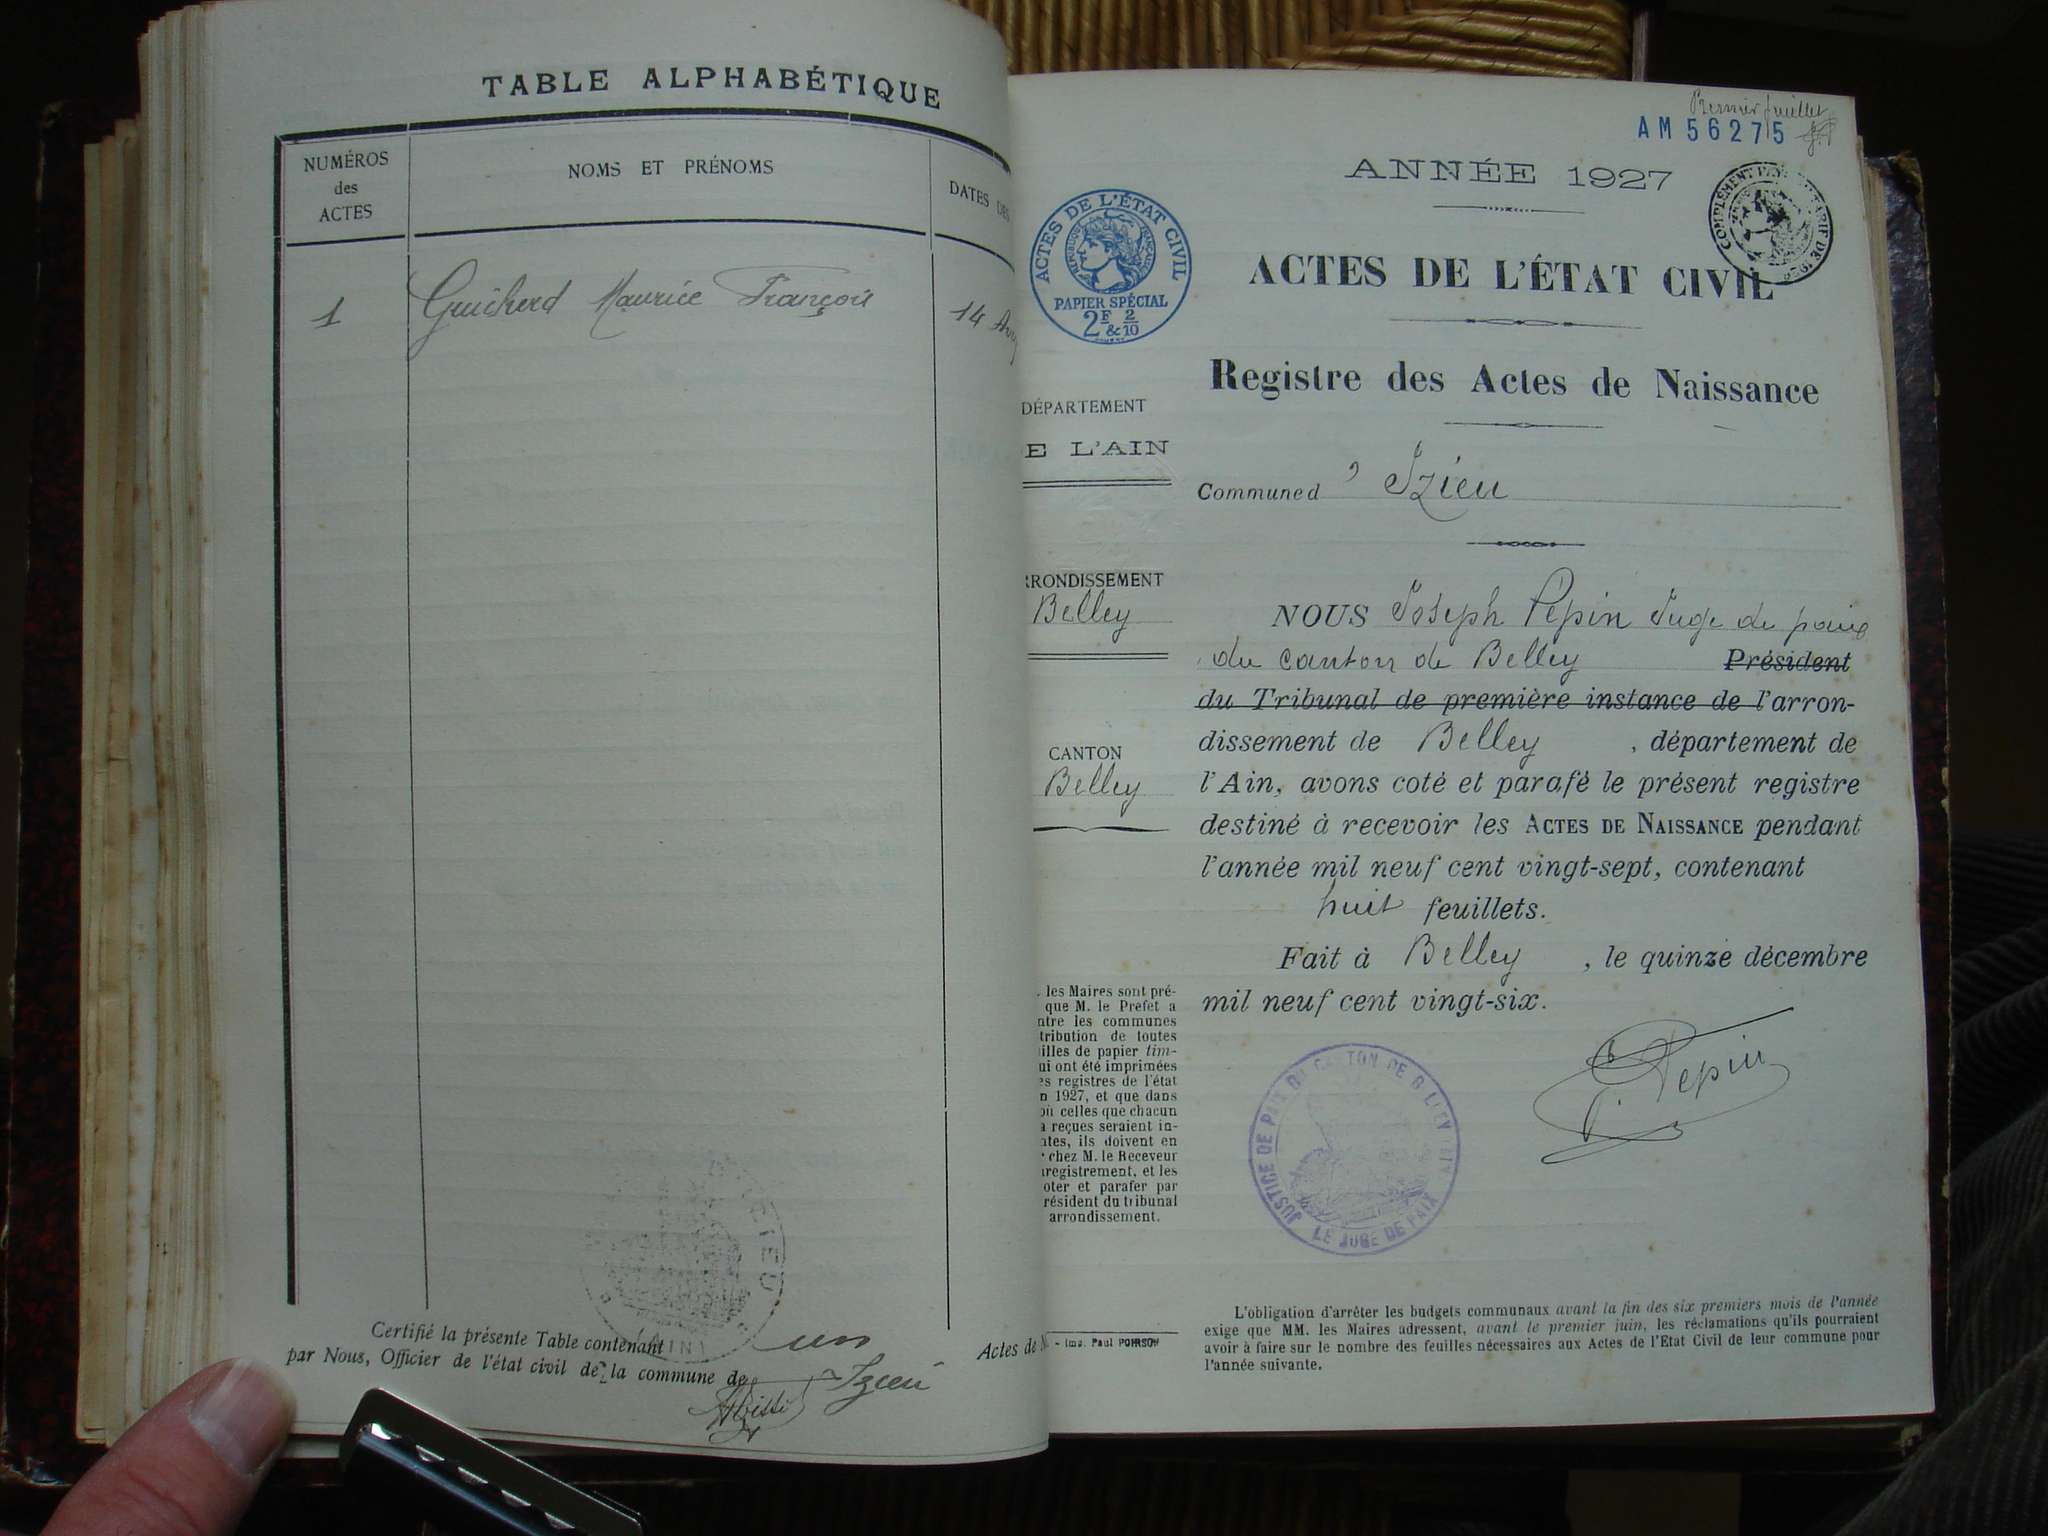 TABLE ALPHABÉTIQUE
NUMÉROS
des
ACTES
NOMS ET PRÉNOMS
DATES DES
1
Guicherd Maurice François
14
Certifié la présente Table contenant un Actes de
par Nous, Officier de l'état civil de la commune de Izieu
Premier feuillet
AM 56275
ANNÉE 1927
COMPLÉMENT
ACTES DE L'ÉTAT CIVIL
RÉPUBLIQUE FRANÇAISE
PAPIER SPÉCIAL
2F & 2/10
ACTES DE L'ÉTAT CIVIL
Registre des Actes de Naissance
DÉPARTEMENT
E L'AIN
Commune d' Izieu
RRONDISSEMENT
Belley
CANTON
Belley
NOUS Joseph Pépin Juge de paix
du canton de Belley Président
du Tribunal de première instance de l'arron-
dissement de Belley, département de
l'Ain, avons coté et parafé le présent registre
destiné à recevoir les ACTES DE NAISSANCE pendant
l'année mil neuf cent vingt-sept, contenant
huit feuillets.
Fait à Belley, le quinze décembre
mil neuf cent vingt-six.
Pepin
. les Maires sont pré-
que M. le Prefet a
ntre les communes
tribution de toutes
illes de papier tim-
ui ont été imprimées
es registres de l'état
n 1927, et que dans
où celles que chacun
a reçues seraient in-
ntes, ils doivent en
r chez M. le Receveur
nregistrement, et les
oter et parafer par
résident du tribunal
arrondissement.
JUSTICE DE PAIX DU CANTON DE BELLEY (AIN)
LE JUGE DE PAIX
- Imp. Paul POIRSON
L'obligation d'arrêter les budgets communaux avant la fin des six premiers mois de l'année
exige que MM. les Maires adressent, avant le premier juin, les réclamations qu'ils pourraient
avoir à faire sur le nombre des feuilles nécessaires aux Actes de l'Etat Civil de leur commune pour
l'année suivante.